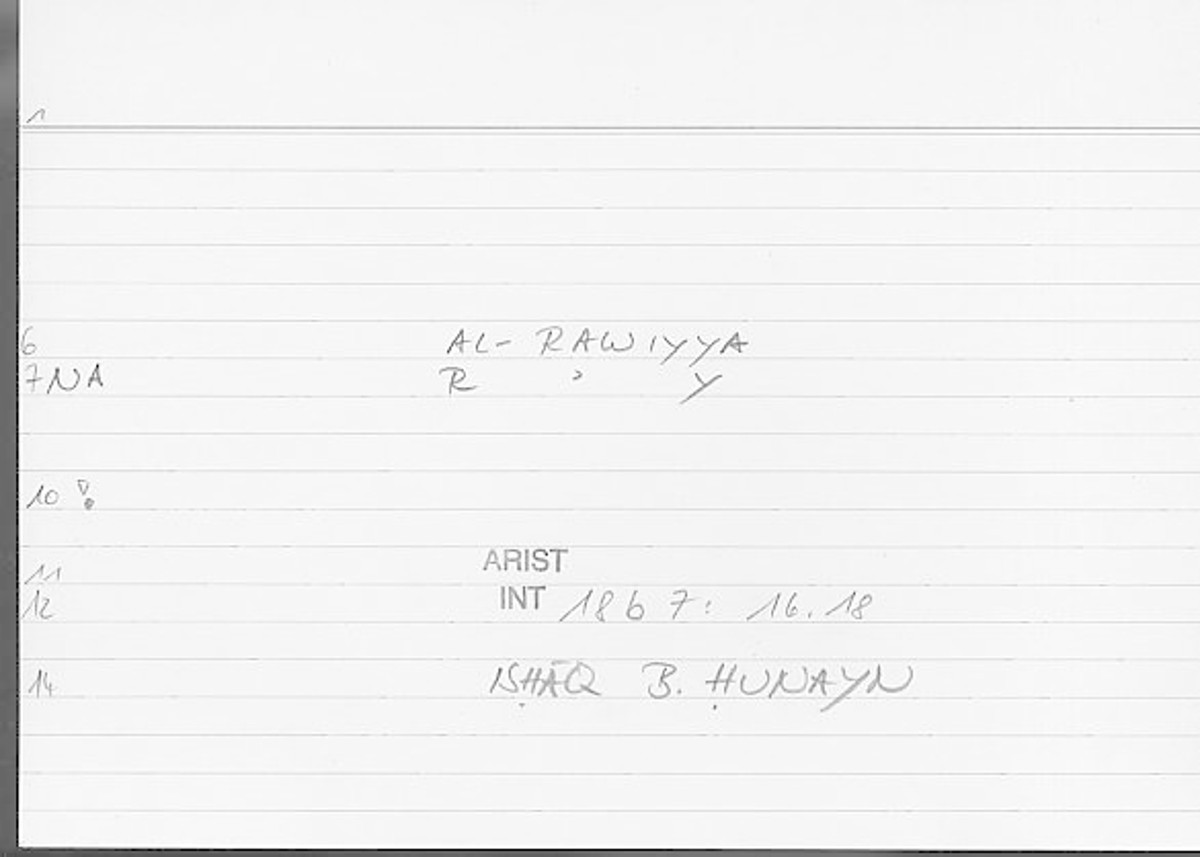 1
6 AL-RAWIYYA
7 NA R ʾ Y
10
11 ARIST
12 INT 18 b 7: 16.18
14 ISḤĀQ B. ḤUNAYN